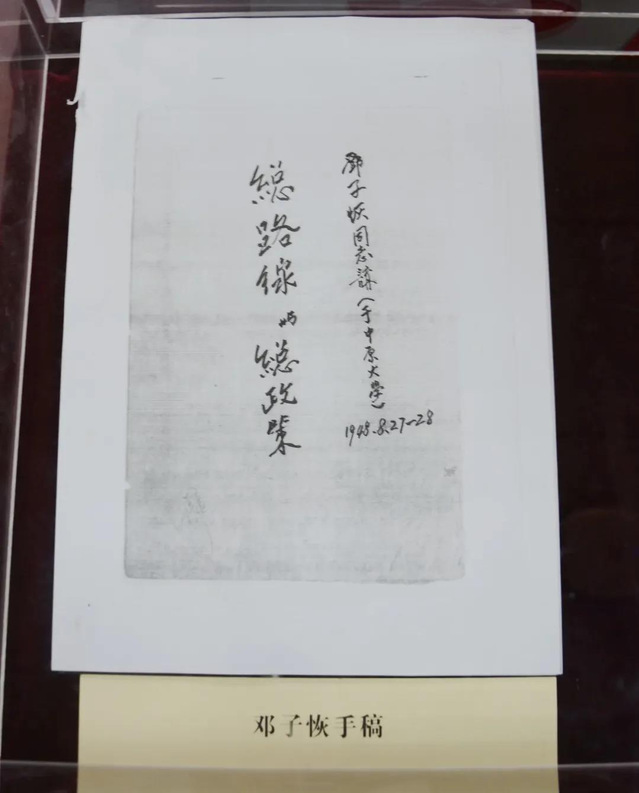 鄧子恢同志講（于中原大學）
1948.8.27-28
總路線與總政策
邓子恢手稿